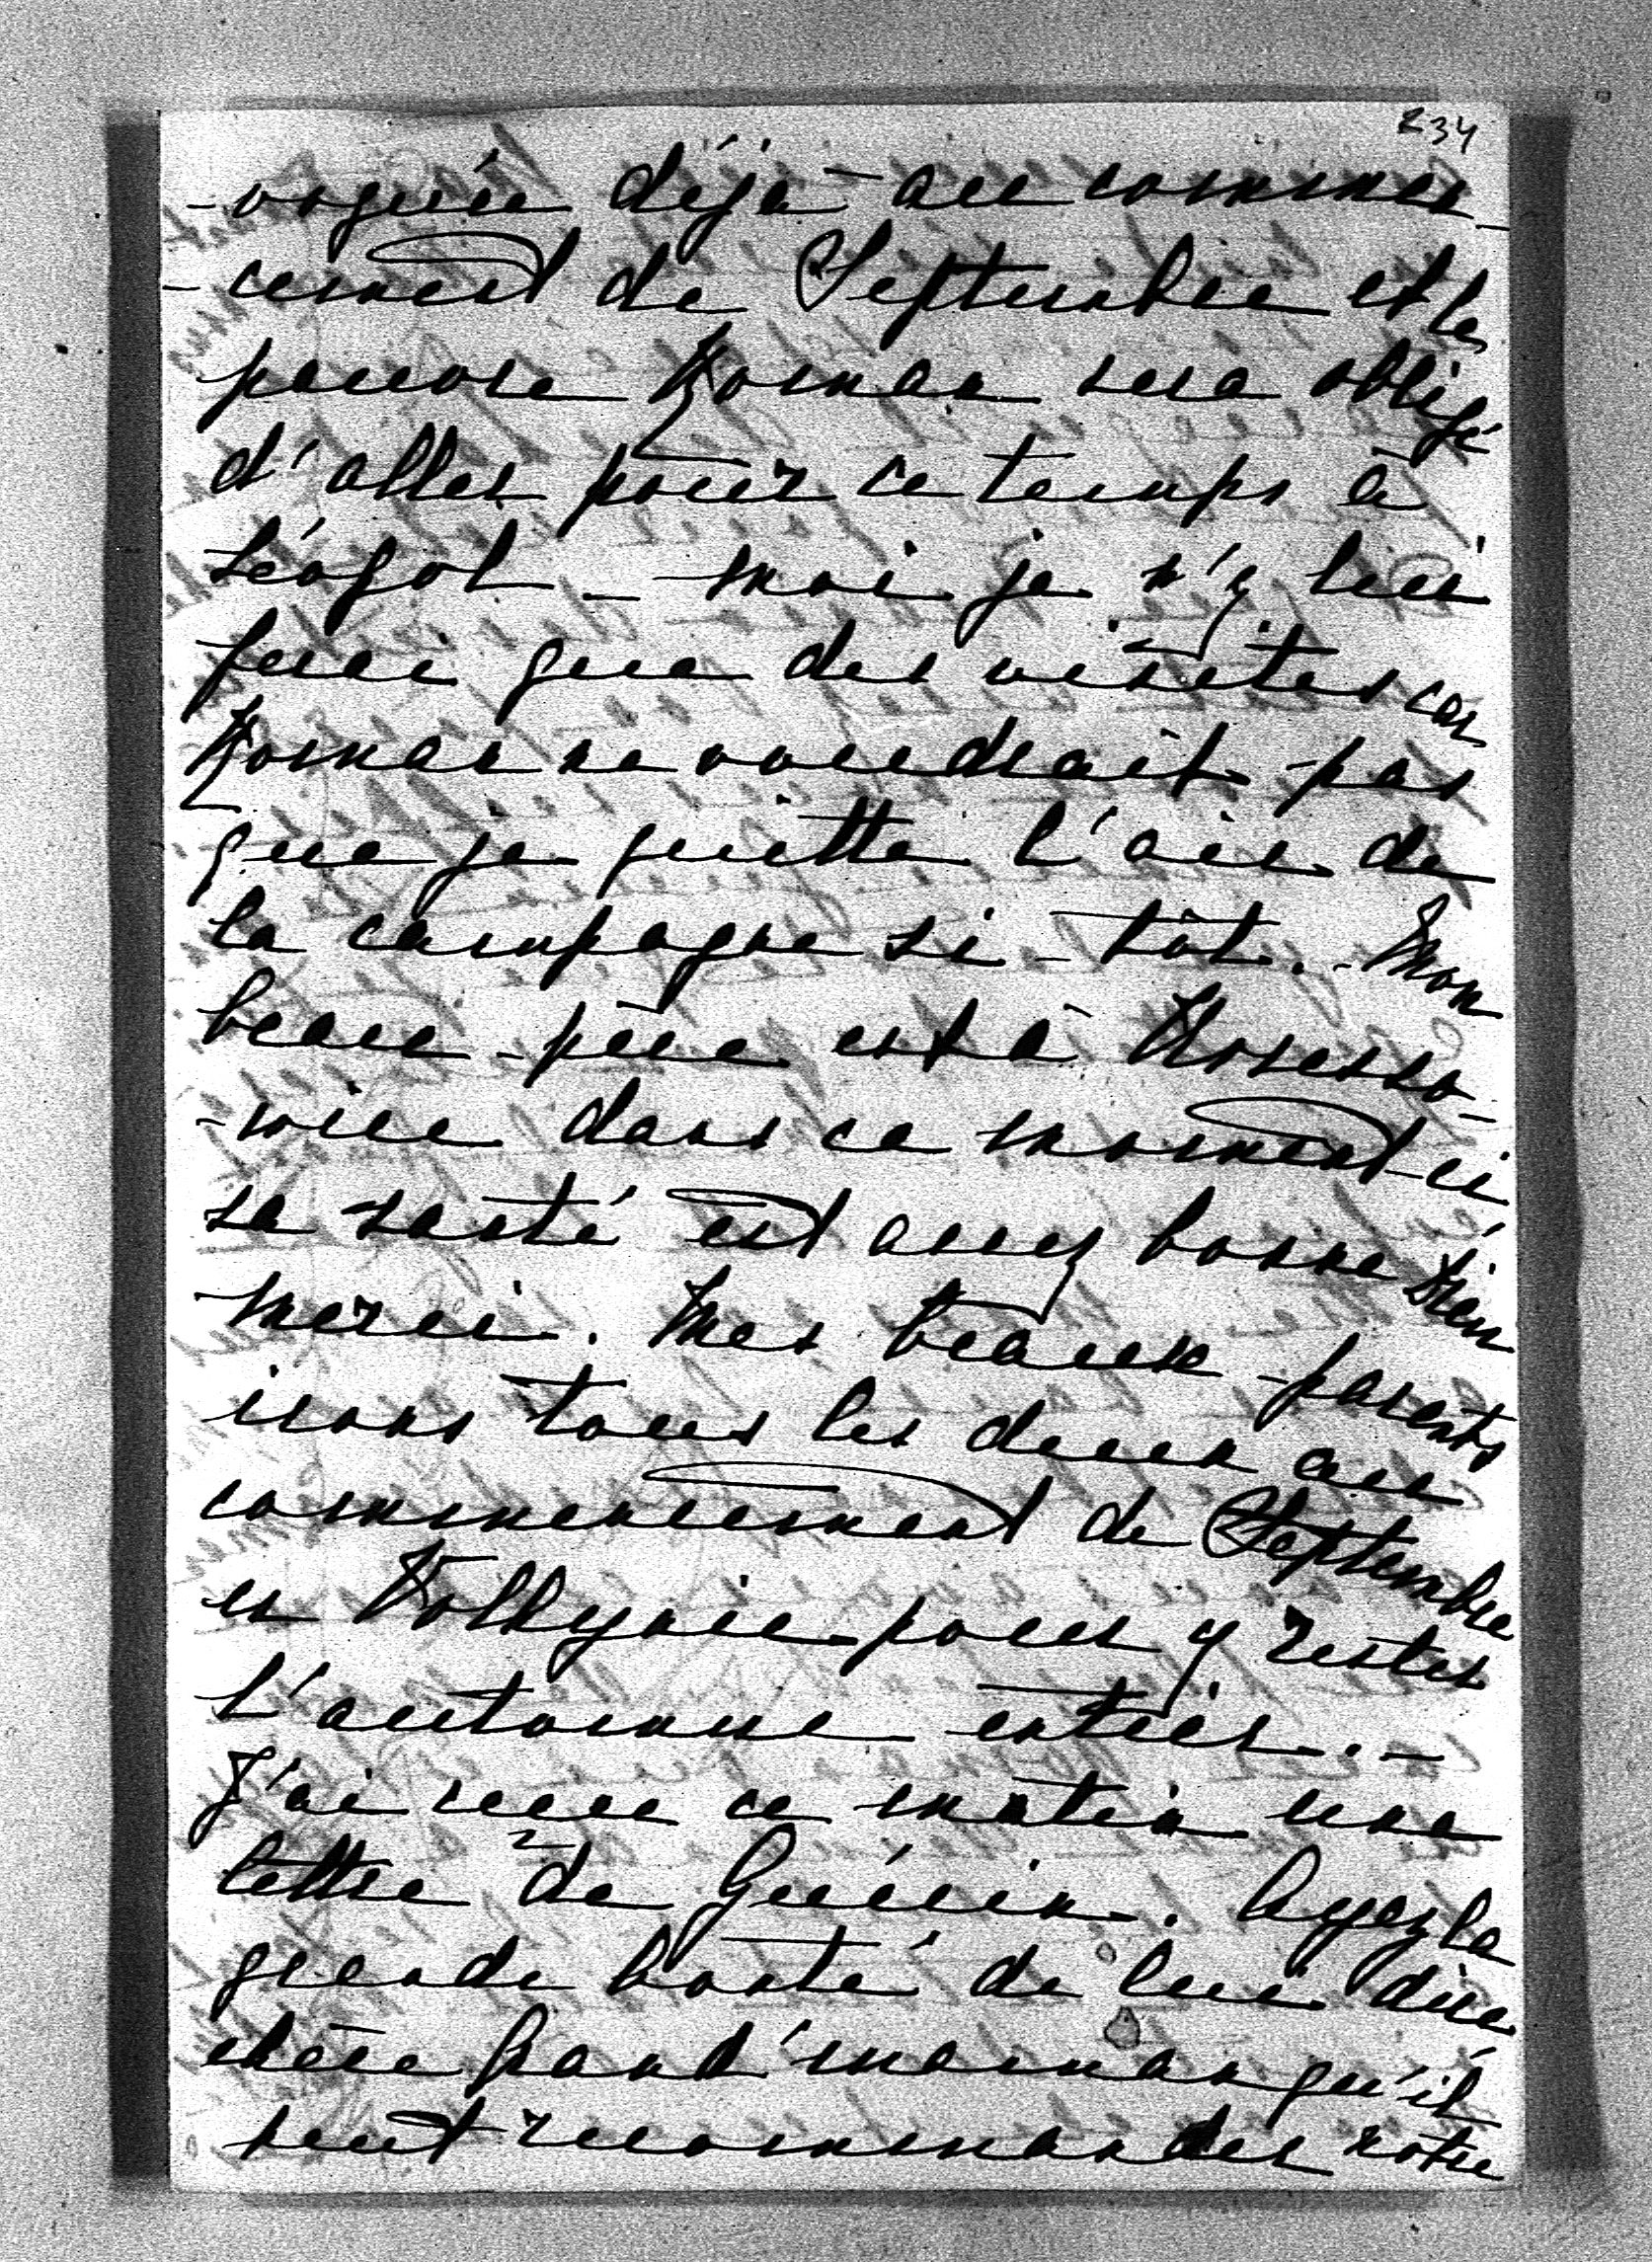 234
-voquée déjà au commen-
-cement de Septembre et le
pauvre Roman sera obligé
d'aller pour ce temps à
Léopol - moi je n'y
ferai que des visites car
Roman ne voudrait pas
que je quitte l'air de
la campagne si-tôt. - Mon
beau-père est à Kresso-
-vice dans ce moment-ci
sa santé est assez bonne Dieu
merci. Mes beaux-parents
irons tous les deux au
commencement de Septembre
en Volhynie pour y rester
l'automne entier. -
J'ai reçu ce matin une
lettre de Guérin. Ayez la
grande bonté de lui dire
chère Grand'maman qu'il
peut recommander notre